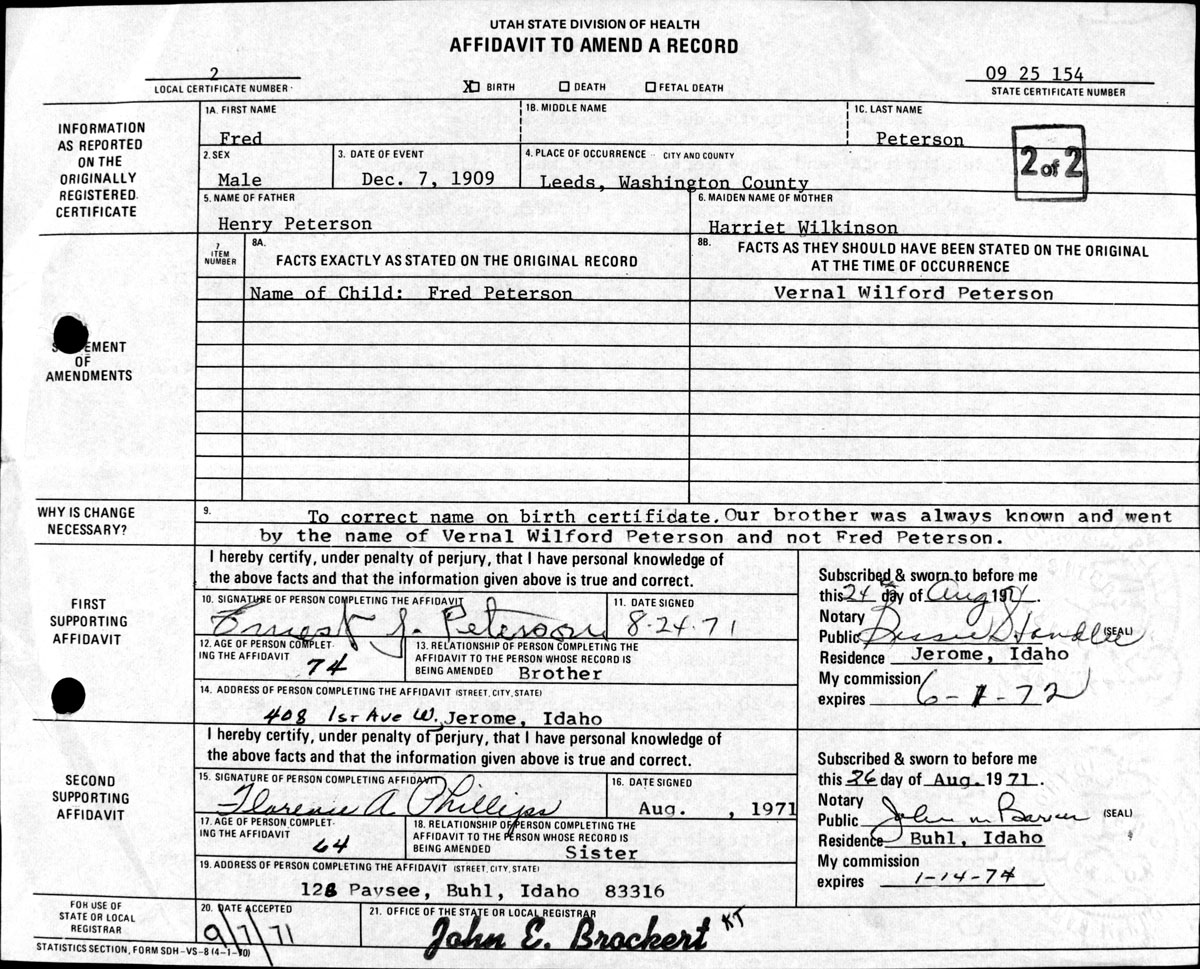 UTAH STATE DIVISION OF HEALTH
AFFIDAVIT TO AMEND A RECORD
2
LOCAL CERTIFICATE NUMBER
X BIRTH DEATH FETAL DEATH
09 25 154
STATE CERTIFICATE NUMBER
INFORMATION AS REPORTED ON THE ORIGINALLY REGISTERED CERTIFICATE
1A. FIRST NAME 1B. MIDDLE NAME 1C. LAST NAME
Fred Peterson
2. SEX 3. DATE OF EVENT 4. PLACE OF OCCURRENCE - CITY AND COUNTY
Male Dec. 7, 1909 Leeds, Washington County
2 of 2
5. NAME OF FATHER 6. MAIDEN NAME OF MOTHER
Henry Peterson Harriet Wilkinson
7 ITEM NUMBER
8A. FACTS EXACTLY AS STATED ON THE ORIGINAL RECORD
8B. FACTS AS THEY SHOULD HAVE BEEN STATED ON THE ORIGINAL
AT THE TIME OF OCCURRENCE
Name of Child: Fred Peterson Vernal Wilford Peterson
OF
AMENDMENTS
WHY IS CHANGE
NECESSARY?
9. To correct name on birth certifidate. Our brother was always known and went
by the name of Vernal Wilford Peterson and not Fred Peterson.
FIRST
SUPPORTING
AFFIDAVIT
I hereby certify, under penalty of perjury, that I have personal knowledge of
the above facts and that the information given above is true and correct.
10. SIGNATURE OF PERSON COMPLETING THE AFFIDAVIT 11. DATE SIGNED
Ernest J. Peterson 8-24-71
12. AGE OF PERSON COMPLETING THE AFFIDAVIT
74
13. RELATIONSHIP OF PERSON COMPLETING THE
AFFIDAVIT TO THE PERSON WHOSE RECORD IS
BEING AMENDED Brother
14. ADDRESS OF PERSON COMPLETING THE AFFIDAVIT (STREET, CITY, STATE)
408 1st Ave W. Jerome, Idaho
Subscribed & sworn to before me
this 24 day of Aug 1971.
Notary
Public Bessie (SEAL)
Residence Jerome, Idaho
My commission
expires 6-1-72
SECOND
SUPPORTING
AFFIDAVIT
I hereby certify, under penalty of perjury, that I have personal knowledge of
the above facts and that the information given above is true and correct.
15. SIGNATURE OF PERSON COMPLETING AFFIDAVIT 16. DATE SIGNED
Florence A. Phillips Aug. , 1971
17. AGE OF PERSON COMPLETING THE AFFIDAVIT
64
18. RELATIONSHIP OF PERSON COMPLETING THE
AFFIDAVIT TO THE PERSON WHOSE RECORD IS
BEING AMENDED Sister
19. ADDRESS OF PERSON COMPLETING THE AFFIDAVIT (STREET, CITY, STATE)
Buhl, Idaho 83316
Subscribed & sworn to before me
this 26 day of Aug. 1971.
Notary
Public John M (SEAL)
Residence Buhl, Idaho
My commission
expires 1-14-74
FOR USE OF
STATE OR LOCAL
REGISTRAR
20. DATE ACCEPTED
9/7/71
21. OFFICE OF THE STATE OR LOCAL REGISTRAR
John E. Brockert KT
STATISTICS SECTION, FORM SDH-VS-8 (4-1-70)